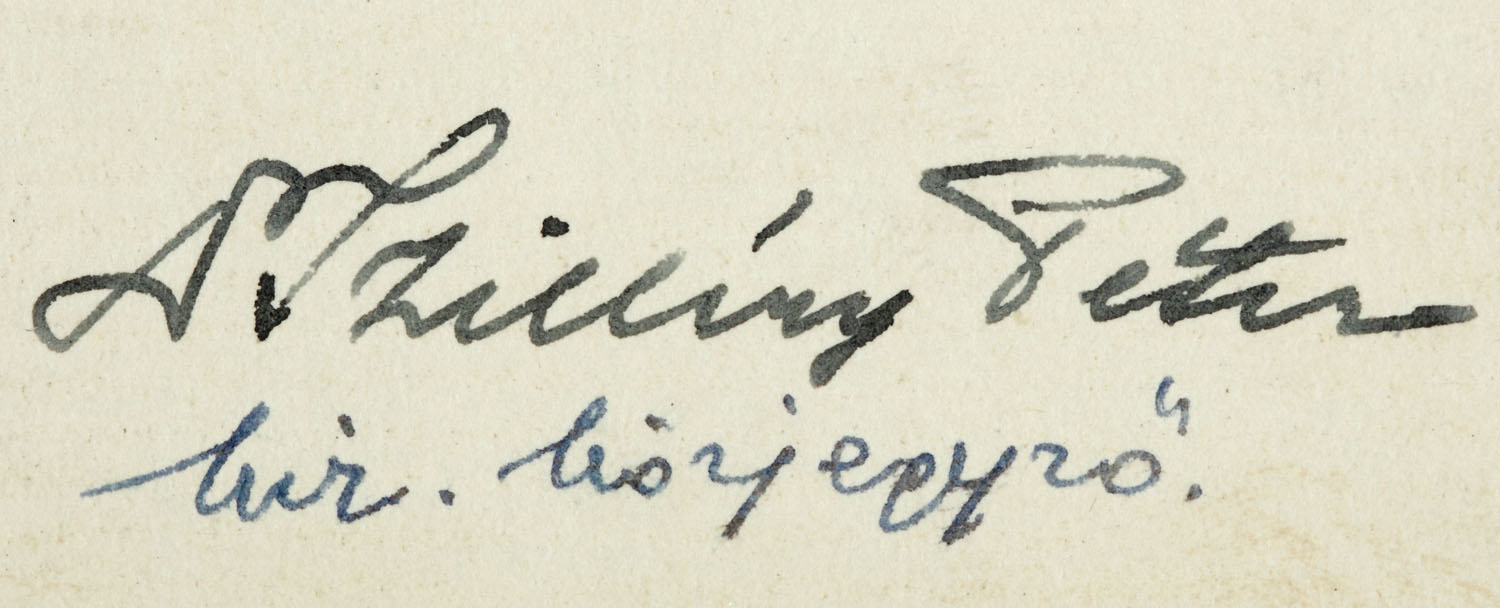 Dr Szilíny Péter
kir. közjegyző.